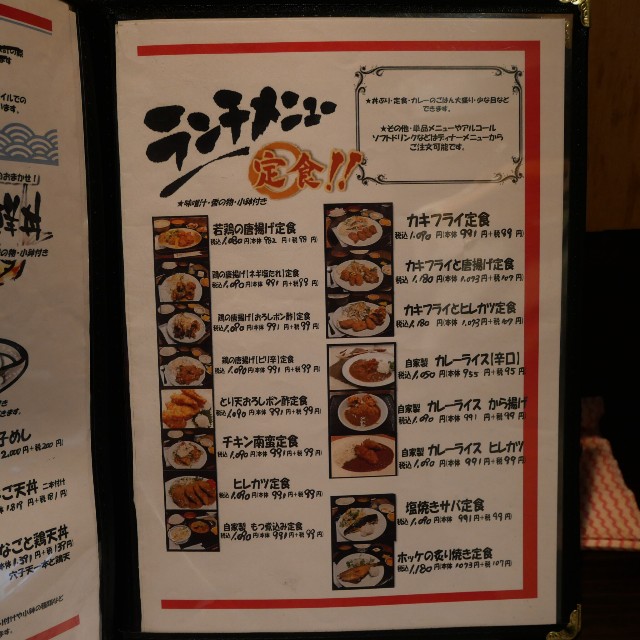 ランチメニュー
定食!!
★丼ぶり・定食・カレーのごはん大盛り・少な目など
できます。
★その他・単品メニューやアルコール
ソフトドリンクなどはディナーメニューから
ご注文可能です。
★味噌汁・香の物・小鉢付き
若鶏の唐揚げ定食
税込1,080円(本体 982 円+税 98 円)
鶏の唐揚げ【ネギ塩だれ】定食
税込1,090円(本体 991 円+税 99 円)
鶏の唐揚げ【おろしポン酢】定食
税込1,090円(本体 991 円+税 99 円)
鶏の唐揚げ【ピリ辛】定食
税込1,090円(本体 991 円+税 99 円)
とり天おろしポン酢定食
税込1,090円(本体 991 円+税 99 円)
チキン南蛮定食
税込1,090円(本体 991 円+税 99 円)
ヒレカツ定食
税込1,090円(本体 991 円+税 99 円)
自家製 もつ煮込み定食
税込1,090円(本体 991 円+税 99 円)
カキフライ定食
税込1,090円(本体 991 円+税 99 円)
カキフライと唐揚げ定食
税込1,180円(本体 1,073 円+税 107 円)
カキフライとヒレカツ定食
税込1,180円(本体 1,073 円+税 107 円)
自家製 カレーライス【辛口】
税込1,050円(本体 955 円+税 95 円)
自家製 カレーライス から揚げ
税込1,090円(本体 991 円+税 99 円)
自家製 カレーライス ヒレカツ
税込1,090円(本体 991 円+税 99 円)
塩焼きサバ定食
税込1,090円(本体 991 円+税 99 円)
ホッケの炙り焼き定食
税込1,180円(本体 1073 円+税 107 円)
イルでの
のおまかせ!】
の物・小鉢付き
子めし
2,000円+税 200 円)
ご天丼 二本付け
なごと鶏天丼
穴子天一本と鶏天